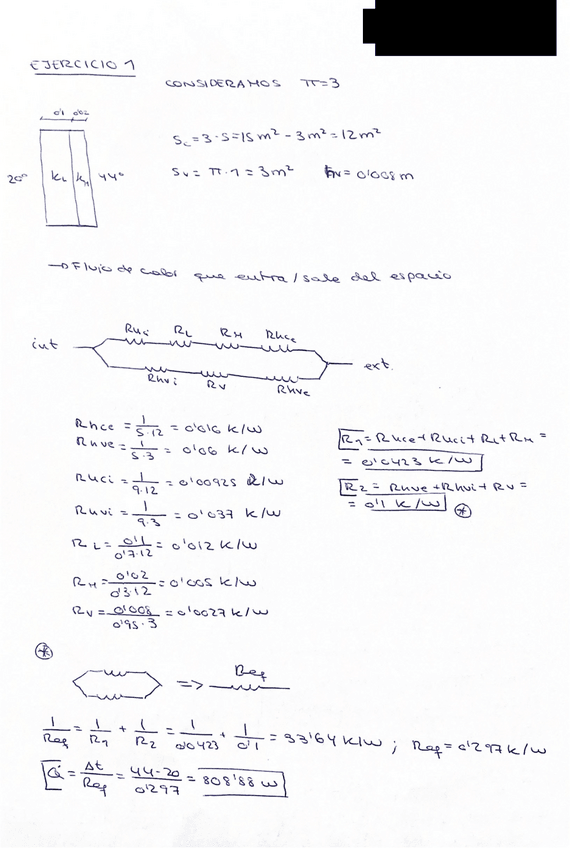 EJERCICIO 1
CONSIDERAMOS π=3
0'1 0'02
20° KL KM 44°
Sc = 3·5 = 15m² - 3m² = 12m²
Sv = π·1 = 3m² hv = 0'008 m
→ Flujo de calor que entra/sale del espacio
Rhci RL RM Rhce
int ext.
Rhvi Rv Rhve
Rhce = 1/5·12 = 0'016 K/W
Rhve = 1/5·3 = 0'06 K/W
Rhci = 1/9·12 = 0'00925 K/W
Rhvi = 1/9·3 = 0'037 K/W
RL = 0'1/0'7·12 = 0'012 K/W
RM = 0'02/0'3·12 = 0'005 K/W
Rv = 0'008/0'95·3 = 0'0027 K/W
R1 = Rhce + Rhci + RL + RM =
= 0'0423 K/W
R2 = Rhve + Rhvi + Rv =
= 0'1 K/W *
*
=> Req
1/Req = 1/R1 + 1/R2 = 1/0'0423 + 1/0'1 = 33'64 K/W ; Req = 0'297 K/W
Q̇ = Δt/Req = 44-20/0'297 = 808'88 W